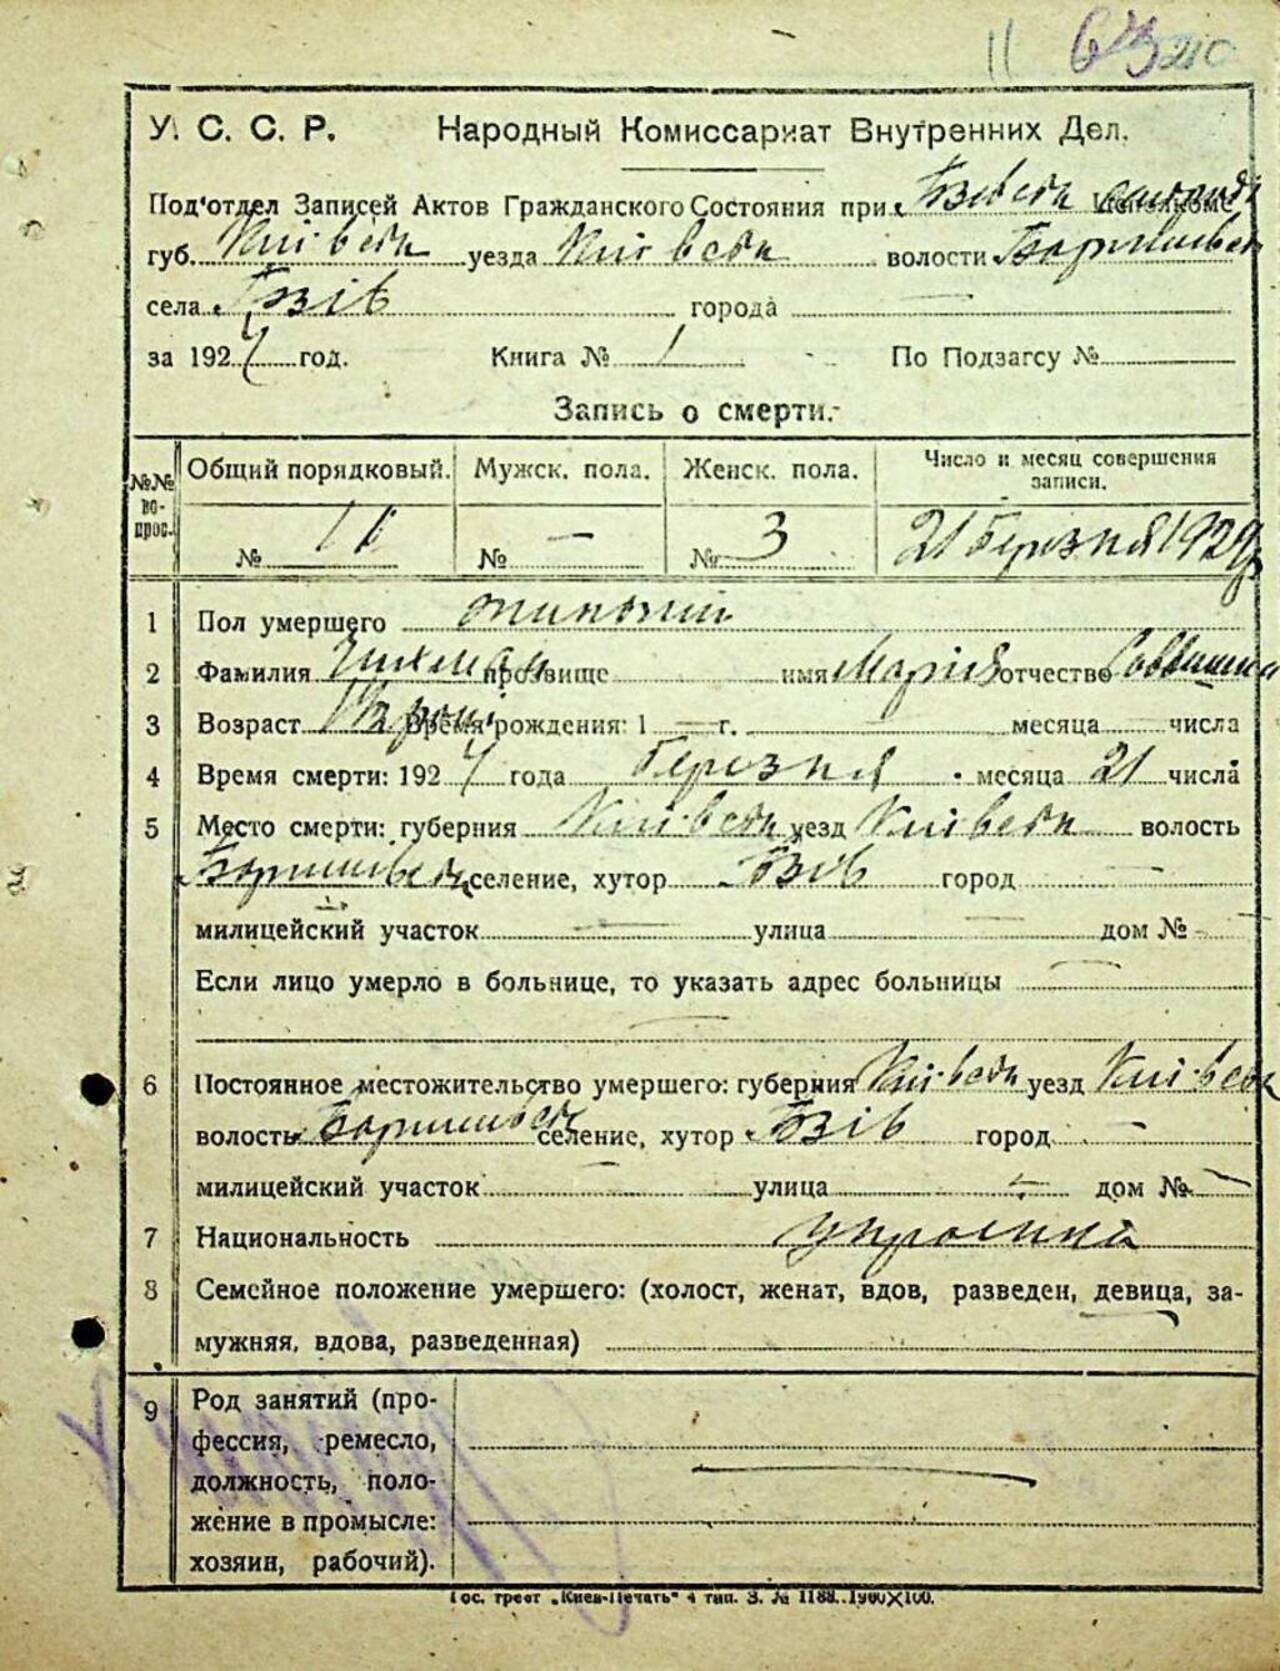 11 210
У. С. С. Р. Народный Комиссариат Внутренних Дел.
Под'отдел Записей Актов Гражданского Состояния при Бзівськ
губ. Київськ уезда Київськ волости Баришівськ
села Бзів города —
за 1924 год. Книга № 1 По Подзагсу №
Запись о смерти.
№№ вопрос. Общий порядковый. Мужск. пола. Женск. пола. Число и месяц совершения
записи.
№ 11 № — № 3 21 Березня 1924 р
1 Пол умершего жиночий
2 Фамилия прозвище имя Марія отчество
3 Возраст Время рождения: 1 — г. месяца — числа
4 Время смерти: 1924 года Березня месяца 21 числа
5 Место смерти: губерния Київськ уезд Київськ волость
Баришівськ селение, хутор Бзів город —
милицейский участок — улица — дом № —
Если лицо умерло в больнице, то указать адрес больницы —
—
6 Постоянное местожительство умершего: губерния Київськ уезд Київськ
волость Баришівськ селение, хутор Бзів город —
милицейский участок — улица — дом № —
7 Национальность украінка
8 Семейное положение умершего: (холост, женат, вдов, разведен, девица, за-
мужняя, вдова, разведенная)
9 Род занятий (про-
фессия, ремесло,
должность, поло- —
жение в промысле:
хозяин, рабочий).
Гос. трест „Киев-Печать" 4 тип. З. № 1188. 1900×100.